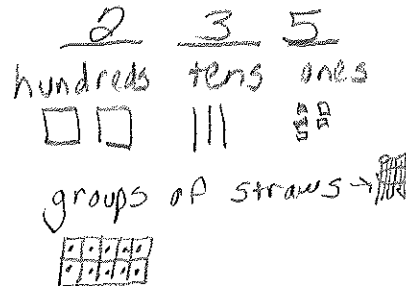 2 3 5
hundreds tens ones
groups of straws →